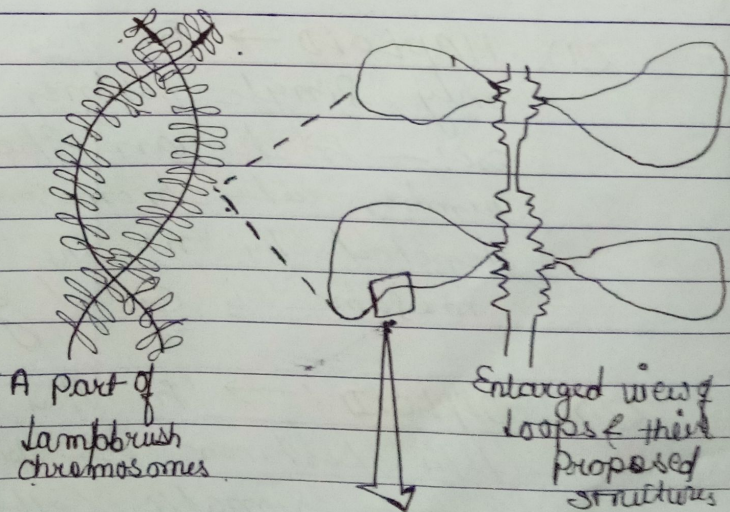 A part of
Lampbrush
chromosomes
Enlarged view of
Loops & their
proposed
structures